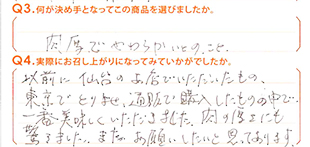 Q3.何が決め手となってこの商品を選びましたか。
肉厚でやわらかいとのこと。
Q4.実際にお召し上がりになってみていかがでしたか。
以前に仙台のお店でいただいたもの、
東京でとりよせ、通販で購入したものの中で、
一番美味しくいただきました。肉の厚さにも
驚きました。またお願いしたいと思っております。